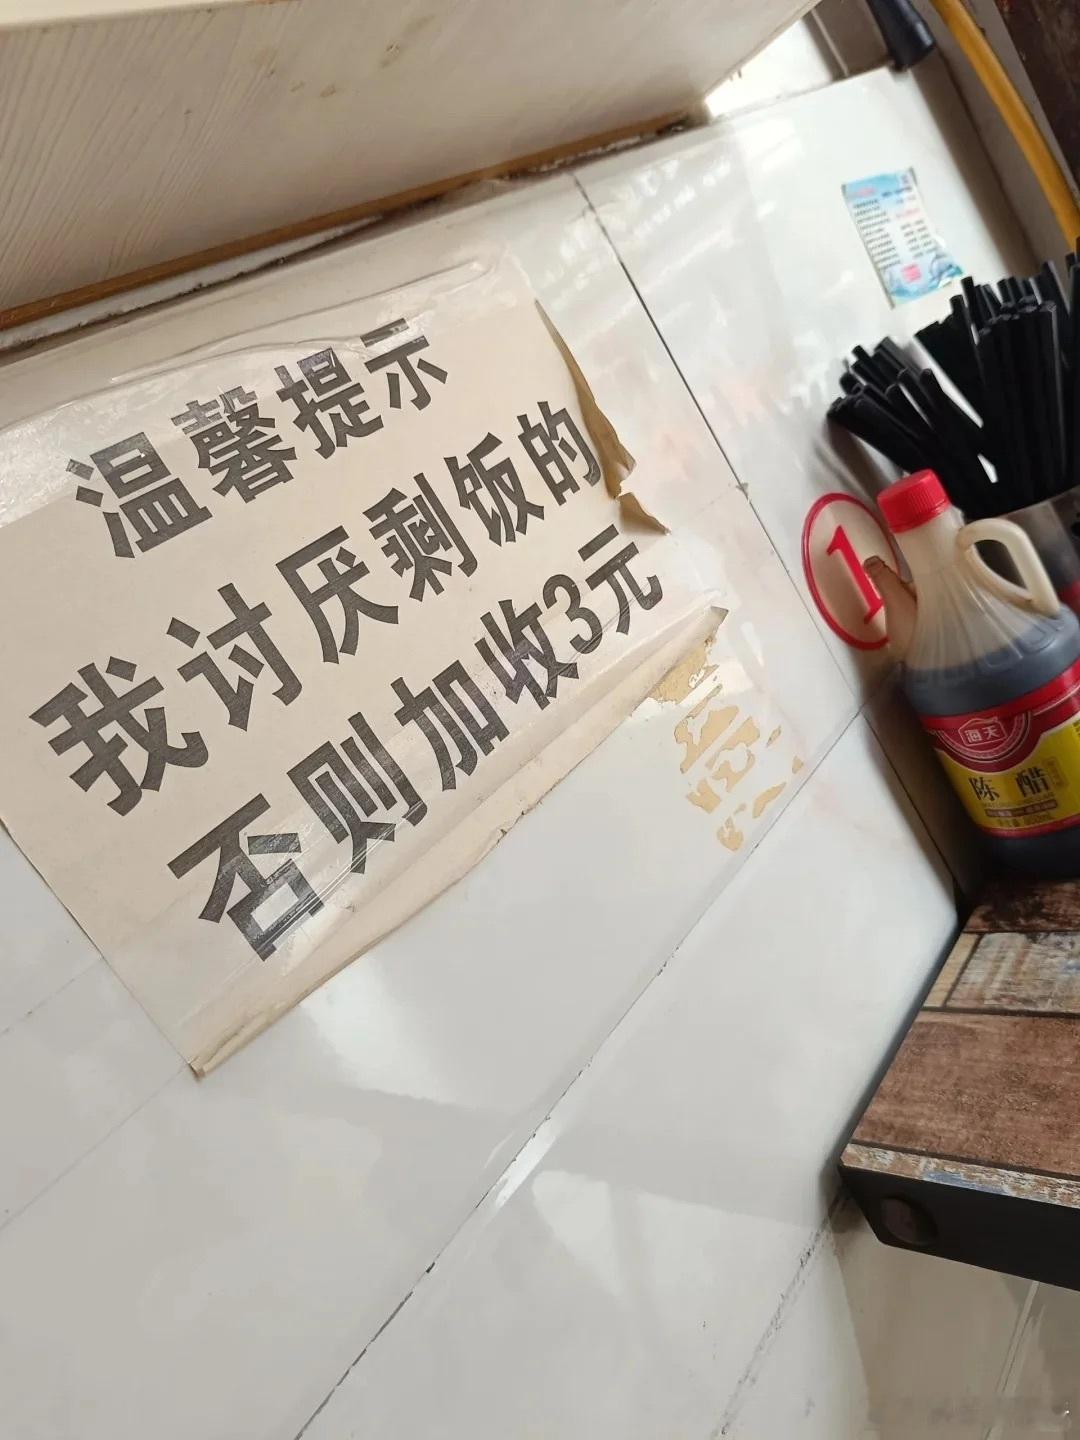 温馨提示
我讨厌剩饭的
否则加收3元
1
海天
陈醋
800mL